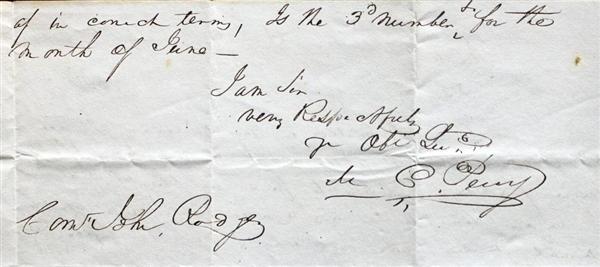 of in correct terms, Is the 3d number for the
month of June —
I am Sir
very Respectfully
yr Obt Sert
M. C. Perry
Comr Jno. Rodgers